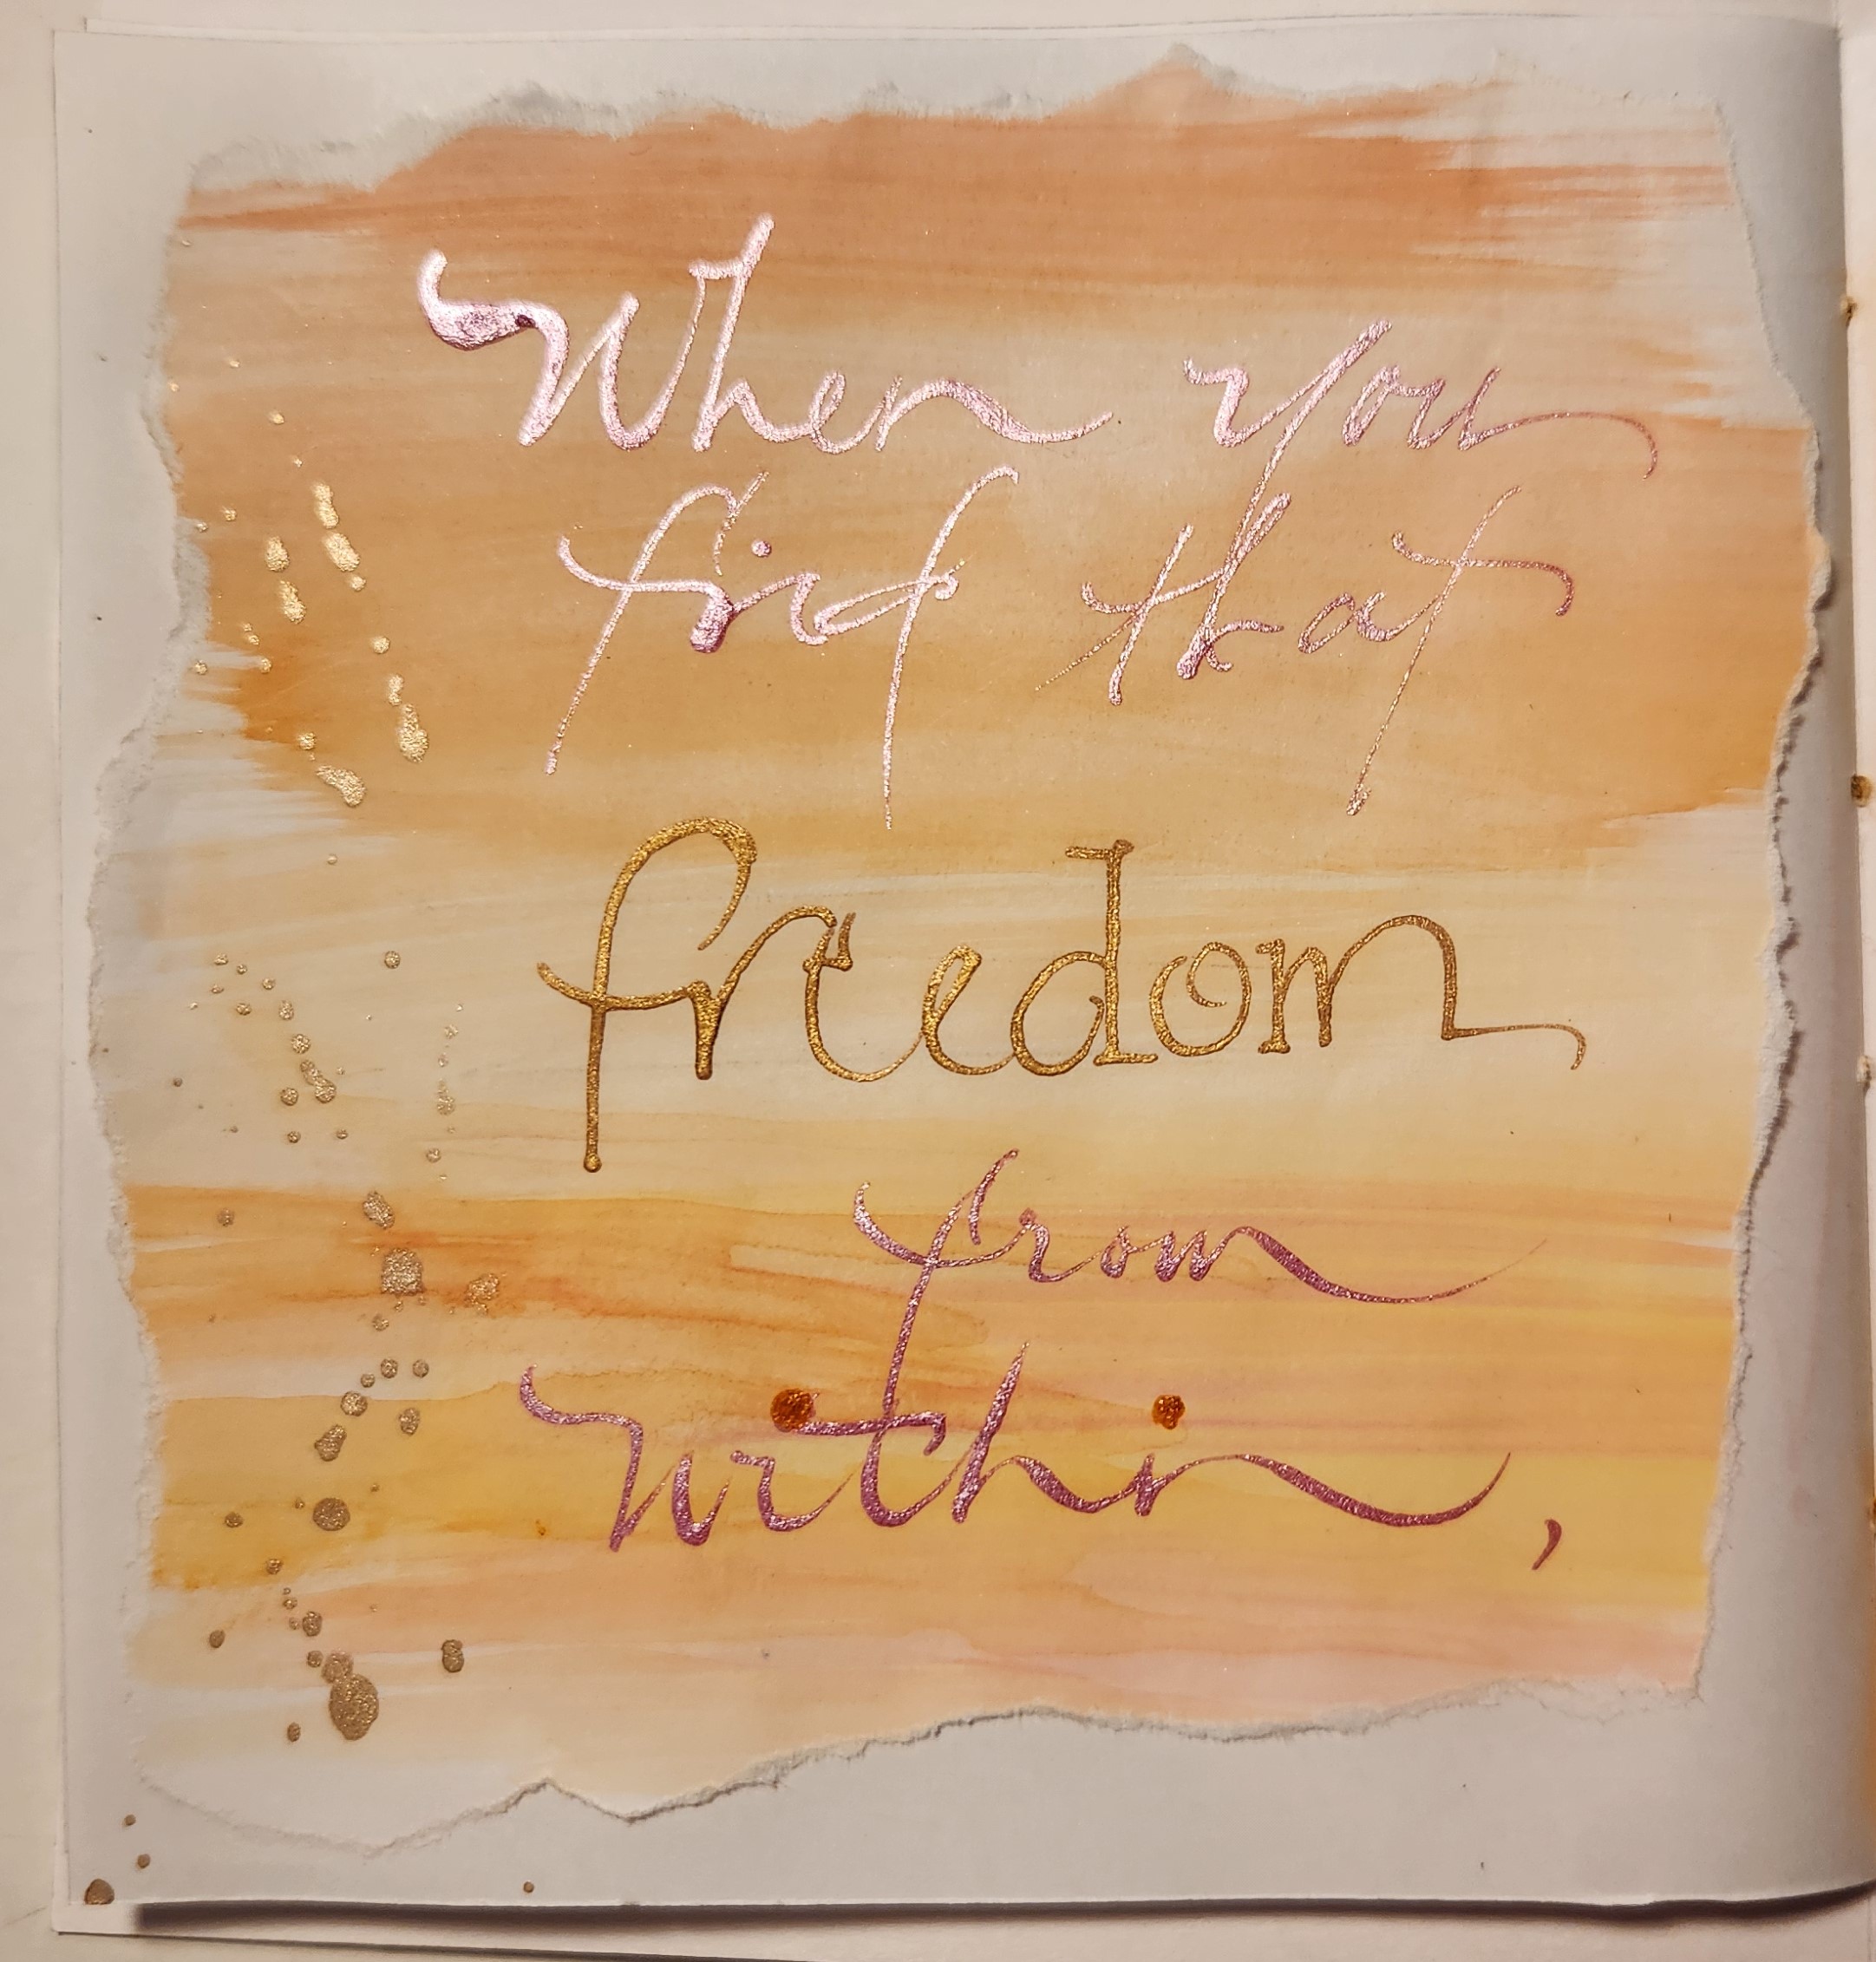 When you
find that
freedom
from
within,